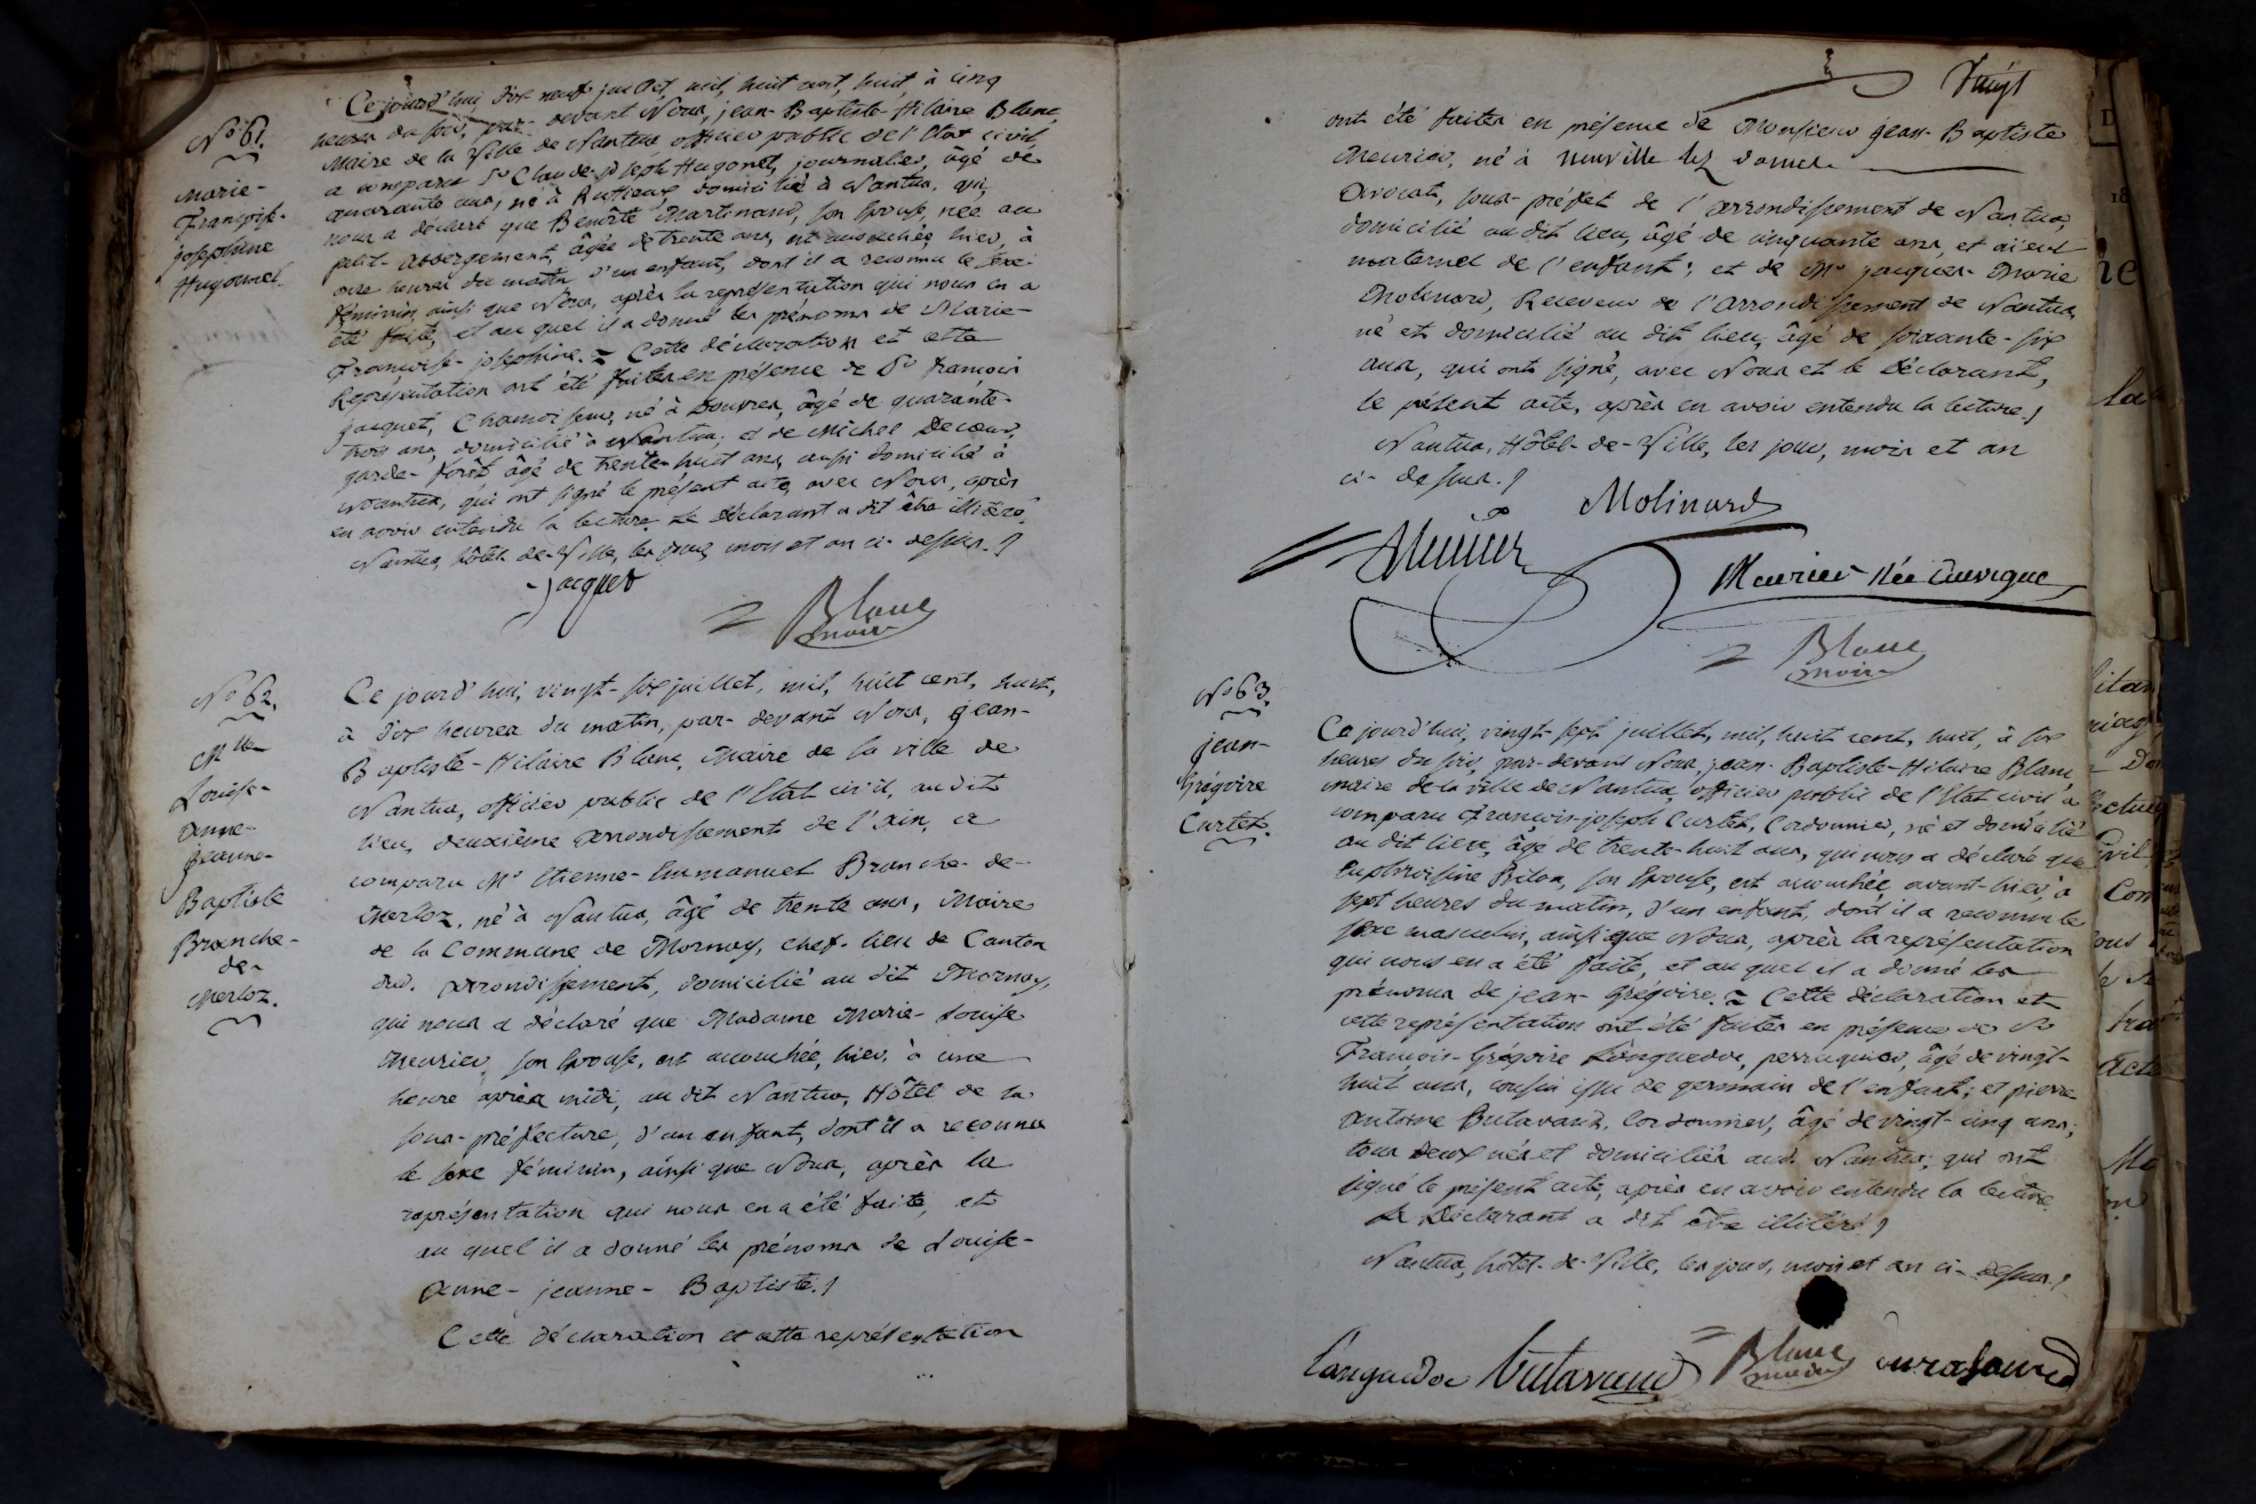 No 61.
Marie-
Françoise-
josephine
Hugonnet.
Ce jourd'hui, dix neuf juillet, mil, huit cent, huit, à cinq
heures du soir, par-devant Nous, jean-Baptiste-Hilaire Blanc,
Maire de la Ville de Nantua officier public de l'Etat civil,
a comparu Sr Claude-joseph Hugonet, journalier, âgé de
quarante ans, né à Ruffieux, domicilié à Nantua, qui
nous a déclaré que Benoîte Martinand, son Epouse, née au
petit-Abbergement, âgée de trente ans, est accouchée, hier, à
onze heures du matin d'un enfant, dont il a reconnu le sexe
féminin, ainsi que Nous, après la représentation qui nous en a
été faite, et au quel il a donné les prénoms de Marie-
Françoise-josephine. = Cette déclaration et cette
Représentation ont été faites en présence de Sr françois
jacquet, Chamoiseur, né à Douvres, âgé de quarante-
trois ans, domicilié à Nantua; et de Michel Decoeur,
garde-forêt âgé de trente-huit ans, aussi domicilié à
Nantua, qui ont signé le présent acte, avec Nous, après
en avoir entendu la lecture. Le Déclarant a dit être illitéré.
Nantua, hôtel-de-Ville, les jour, mois et an ci-dessus.
jacquet
Blanc
maire
No 62.
Mlle
Louise-
anne-
jeanne-
Baptiste
Branche-
de-
Merloz.
Ce jourd'hui, vingt-six juillet, mil, huit cent, huit,
à dix heures du matin, par-devant Nous, jean-
Baptiste-Hilaire Blanc, Maire de la ville de
Nantua, officier public de l'Etat civil, au dit
lieu, deuxième arrondissement de l'ain, a
comparu Mr Etienne-Emmanuel Branche-de-
Merloz, né à Nantua, âgé de trente ans, Maire
de la Commune de Mornay, chef-lieu de Canton
dud. arrondissement, domicilié au dit Mornay,
qui nous a déclaré que Madame Marie-Louise
Meurier, son Epouse, est accouchée, hier, à une
heure après midi, au dit Nantua, Hôtel de la
sous-préfecture, d'un enfant, dont il a reconnu
le sexe féminin, ainsi que Nous, après la
représentation qui nous en a été faite, et
au quel il a donné les prénoms de Louise-
anne-jeanne-Baptiste.
Cette déclaration et cette représentation
ont été faites en présence de Monsieur jean-Baptiste
Meurier, né à Neuville lez dames
avocat, sous-préfet de l'arrondissement de Nantua,
domicilié au dit lieu, âgé de cinquante ans, et aïeul
maternel de l'enfant; et de Mr jacques-Marie
Molinard, Receveur de l'arrondissement de Nantua,
né et domicilié au dit lieu, âgé de soixante-six
ans, qui ont signé, avec Nous et le Déclarant,
le présent acte, après en avoir entendu la lecture.
Nantua, Hôtel-de-Ville, les jour, mois et an
ci-dessus.
Molinard
Meurier née
Blanc
maire
No 63.
jean-
Grégoire
Curtet.
Ce jourd'hui, vingt-sept juillet, mil, huit cent, huit, à six
heures du soir, par-devant Nous, jean-Baptiste-Hilaire Blanc
maire de la ville de Nantua, officier public de l'Etat civil a
comparu François-joseph Curtet, Cordonnier, né et domicilié
au dit lieu, âgé de trente-huit ans, qui nous a déclaré que
son Epouse, est accouchée, avant-hier, à
sept heures du matin, d'un enfant, dont il a reconnu le
sexe masculin, ainsi que Nous, après la représentation
qui nous en a été faite, et au quel il a donné les
prénoms de jean-Grégoire. = Cette déclaration et
cette représentation ont été faites en présence de Sr
François-Grégoire Languedoc, perruquier, âgé de vingt-
huit ans, cousin issu de germain de l'enfant; et pierre
antoine Butavand, Cordonnier, âgé de vingt-cinq ans;
tous deux nés et domiciliés aud. Nantua; qui ont
signé le présent acte, après en avoir entendu la lecture
Le Déclarant a dit être illitéré.
Nantua, hôtel-de-Ville, les jour, mois et an ci-dessus.
Languedoc Butavand Blanc
maire